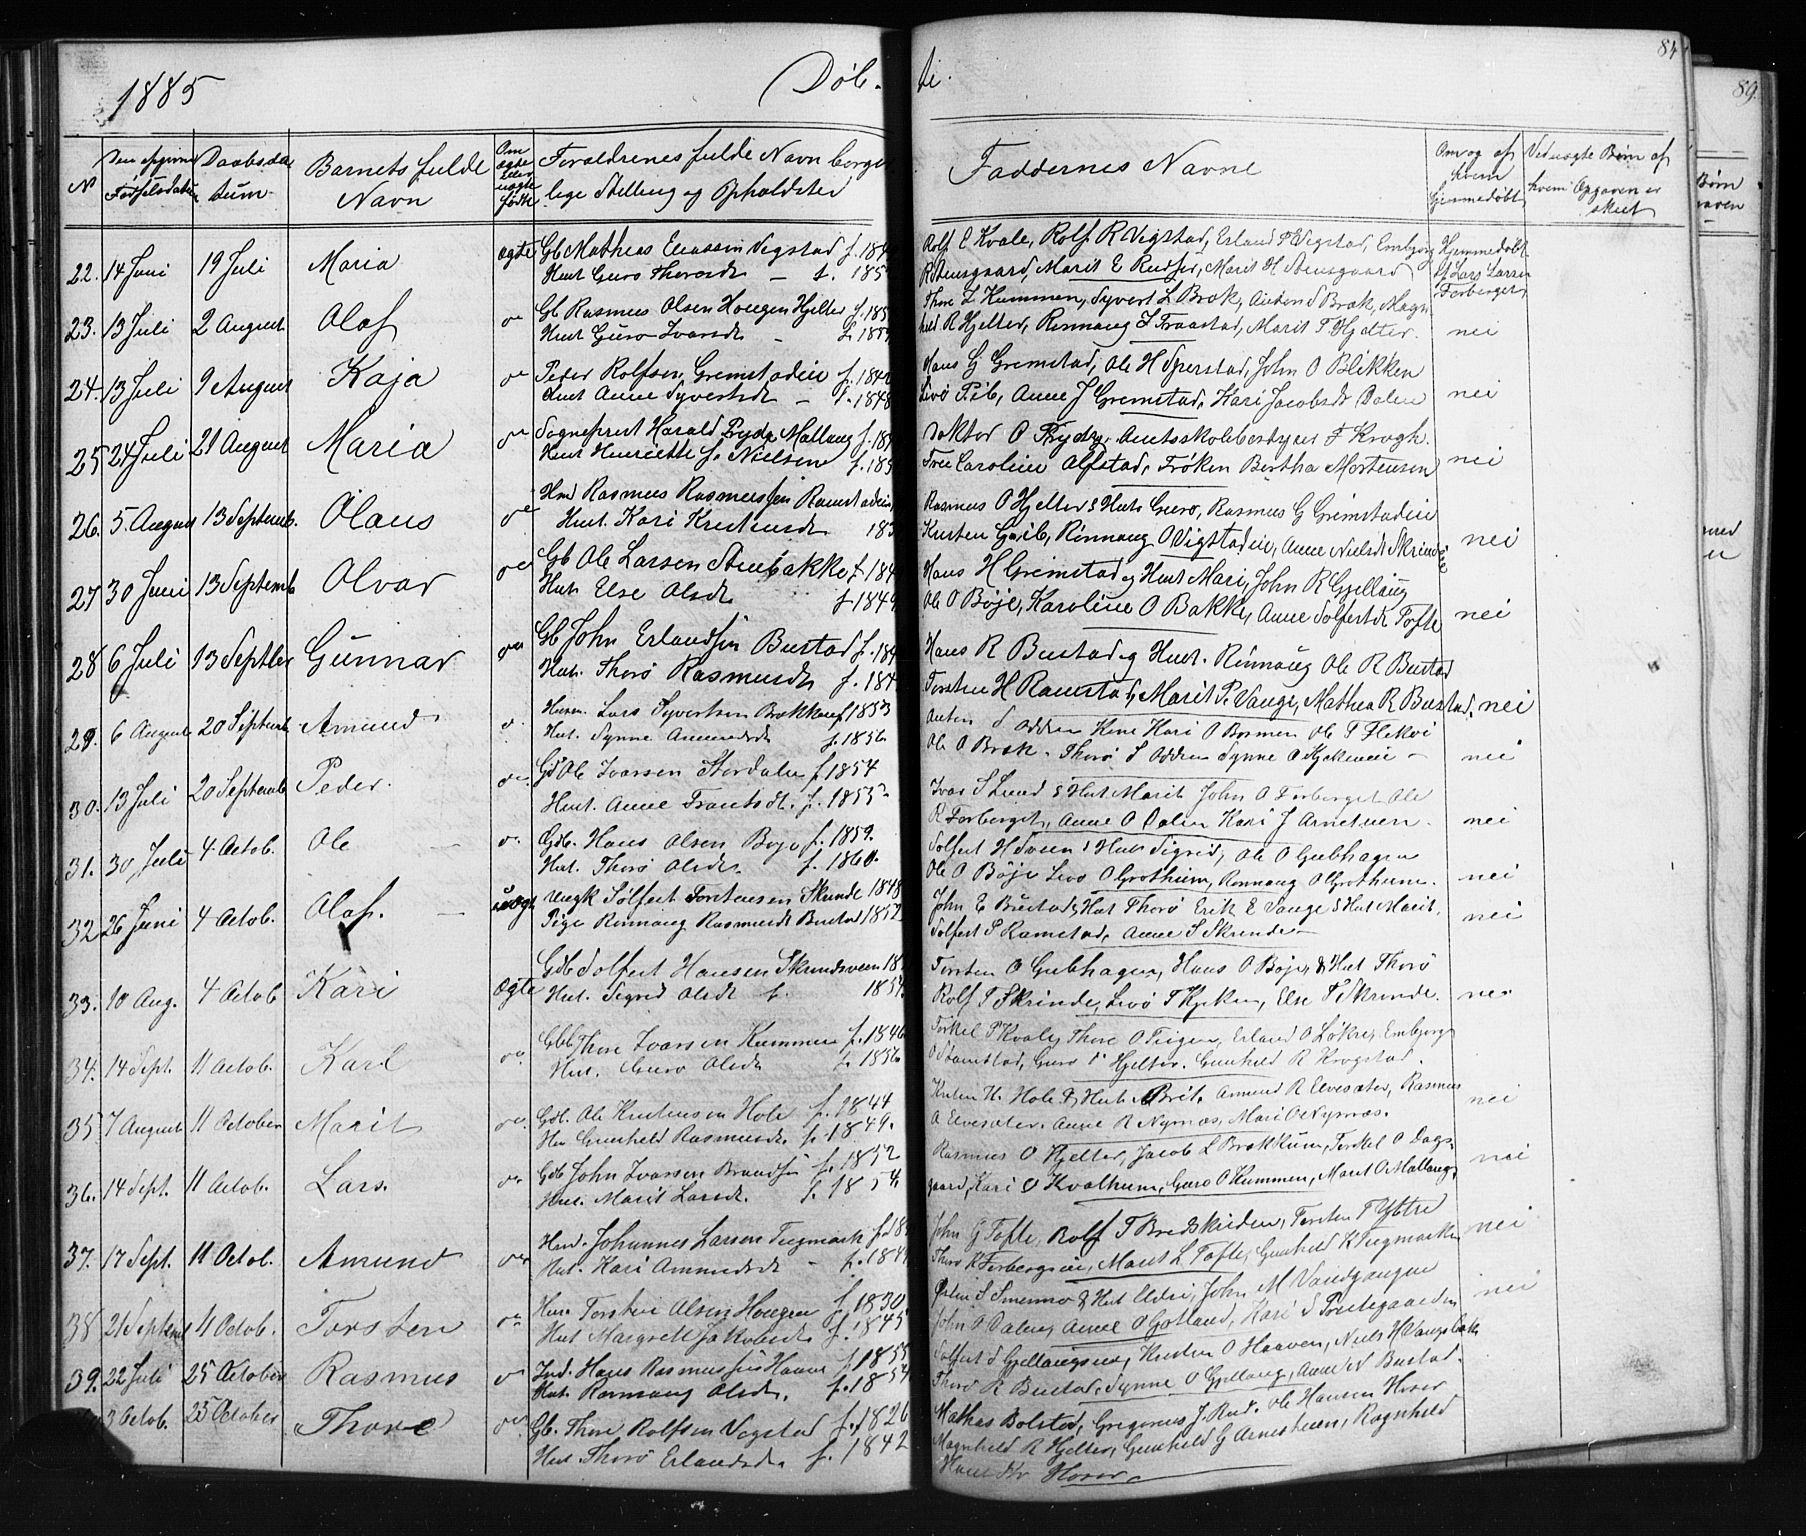 1885
Døb.
te.
84
89.
N
Den opgivne Fødselsdatum
Daabsdatum
Barnets fulde Navn
Om ægte eller uægte født
Forældrenes fulde Navn borgerlige Stilling og Opholdsted
Faddernes Navne
Om og af hvem Hjemmedøbt
Ved uægte Børn af hvem Opgaven er skeet
22. 14 Juni 19 Juli Maria ægte Gb Mathias Eriassen Vigstad f. 184
Hust Guro Thorsdt - f. 185
Rolf E Kvale, Rolf R Vigstad, Erland P Vigstad, Embjørg
R Stensgaard, Marit E Rudser, Marit H Stensgaard
Hjemmedøbt af Lars Larsen Forberget
23. 13 Juli 2 August Olaf Gb Rasmus Olsen Hougen Hjelter f. 185
Hust Guro Ivarsdt - f. 185
Thore I Kummen, Syvert L Bræk, Anton S Bræk, Magn
hild R Hjelter, Rønnaug I Fraastad, Marit T Hjelter. nei
24. 13 Juli 9 August Kaja Peder Rolfsen Gremstadeie f. 184
Hust Anne Syvertsdt - f. 1848
Hans G Gremstad, Ole H Sperstad, John O Blikken
Livø Pib, Anne J Gremstad, Kari Jacobsdt Dalen nei
25 24 Juli 21 August Maria Sogneprest Harald Pryds Matlaug f. 18
Hust Henriette f. Nielsen f. 185
Doktor O Prydz, Amtsskolebestyrer F Krogh.
Frue Caroline Alfstad, Frøken Bertha Mortensen nei
26. 5 August 13 Septemb. Olaus Hmd Rasmus Rasmussen Ramstadeie
Hust. Kari Kristensdt 183
Rasmus O Hjelter & Hust Guro, Rasmus G Gremstadeie
Kristen Gpib, Rønnaug O Vigstadeie, Anne Nielsdt Skrinde nei
27 30 Juni 13 Septemb Olvar Gb Ole Larsen Stenbakke f. 184
Hust Else Olsdt f 1849
Hans H Gremstad og Hust Mari, John R Gjellaug
Ole O Bøje, Karoline O Bakke, Anne Solfestdt Tofte nei
28 6 Juli 13 Septbr Gunnar Gb John Erlandsen Bustad f. 184
Hust. Thorø Rasmusdt f. 184
Hans R Bustad og Hust. Rønnaug Ole R Bustad
Torsten H Ramstad, Marit P. Vange, Mathea R Bustad. nei
29. 6 August 20 Septemb Amund Husm. Lars Syvertsen Bræk f 1853
Hust. Synne Amundsdt f. 1856
Anton S Odden Kone Kari O Bosmen Ole T Flekøi
Ole O Bræk. Thorø S Odden Synne O Kjekeneie nei
30. 13 Juli 20 Septemb Peder. Gb Ole Ivarsen Stordalen f. 1854
Hust. Anne Frantsdt. f. 1853
Ivar S Lund & Hust Marit John O Forberget Ole
R Forberget, Anne O Dalen Kari J Arnetuen. nei
31. 30 Juli 4 Octob. Ole Gdb. Hans Olsen Bøje f. 1859.
Hust. Thorø Olsdt. f. 1860.
Solfest H Sveen & Hust Sigrid, Ole O Gubhagen
Ole O Bøje Livø O Grothum, Rønnaug O Grothum. nei
32 26 Juni 4 Octob. Olaf. uægte Ungk Solfest Torstensen Skrinde 1848
Pige Rønnaug Rasmusdt Bustad 1852
John E Bustad & Hust Thorø Erik E Vange & Hust Marit,
Solfest P Ramstad, Anne S Skrinde nei
33. 10 Aug. 4 Octob Kari ægte Gdb Solfest Hansen Skrindsveen 18
Hust. Sigrid Olsdt f. 1854
Torsten O Gubhagen, Hans O Bøje, & Hust Thorø
Rolf T Skrinde, Livø T Kjeken, Else P Skrinde. nei
34. 14 Sept. 11 Octob. Karl Gbb Thore Ivarsen Kummen f. 1846
Hust. Guro Olsdt f. 1856
Torkel P Kvale, Thore O Teigen, Erland O Løkre, Embjørg
O Stamstad, Guro P Hjelter. Gunhild R Krogstad.
35 7 August 11 October Marit Gdb. Ole Kristensen Hole f. 1844
Hu Gunhild Rasmusdt f. 1849.
Kristen H. Hole & Hust. Brit. Amund R Elvesæter, Rasmus
A Elvesæter. Anne R Nyrnæs, Mari O Nyrnæs. nei
36. 14 Sept. 11 Octob. Lars. Gdb John Ivarsen Brandsei f. 1852
Hust. Marit Larsdt. f. 185
Rasmus O Hjelter, Jacob L Brækkum, Torkel O Dags
gaard, Kari O Kvalhum, Guro O Kummen, Marit O Matlaug nei
37. 17 Sept. 11 Octob. Amund Hmd. Johannes Larsen Tiegmark f. 18
Hust. Kari Amundsdt - f. 184
John G Tofte, Rolf T Bredskriden, Torsten T Yttre
Thorø R Forbergseie, Marit L Tofte, Gunhild K Tiegmark nei
38 21 Septemb 11 Octob. Torsten Husm Torsten Olsen Hougen f. 1830
Hust Margrete Jakobsdt f. 1845
Østen S Smemo & Hust Eldri, John M Vandgangen
John O Dalen, Anne O Gotland, Kari S Prestegaarden nei
39. 22 Juli 25 October Rasmus Ind. Hans Rasmussen Haaven f. 1855
Hust. Rønnaug Olsdt. f. 1854
Solfest S Gjellaugseie, Kristen O Haaven, Niels H Vangsbak
Thorø R Bustad, Synne O Gjellaug, Anne N Bustad.
3 Octob. 25 October Thore Gb. Thore Rolfsen Vigstad f. 1826
Hust Thorø Erlandsdt f. 1842
Mathias Bolstad, Gregorius J. Rust. Ole Hansen Hosar
Magnhild R Hjelter, Gunhild G Arneshuen, Ragnhild
Hansdtr Hosar